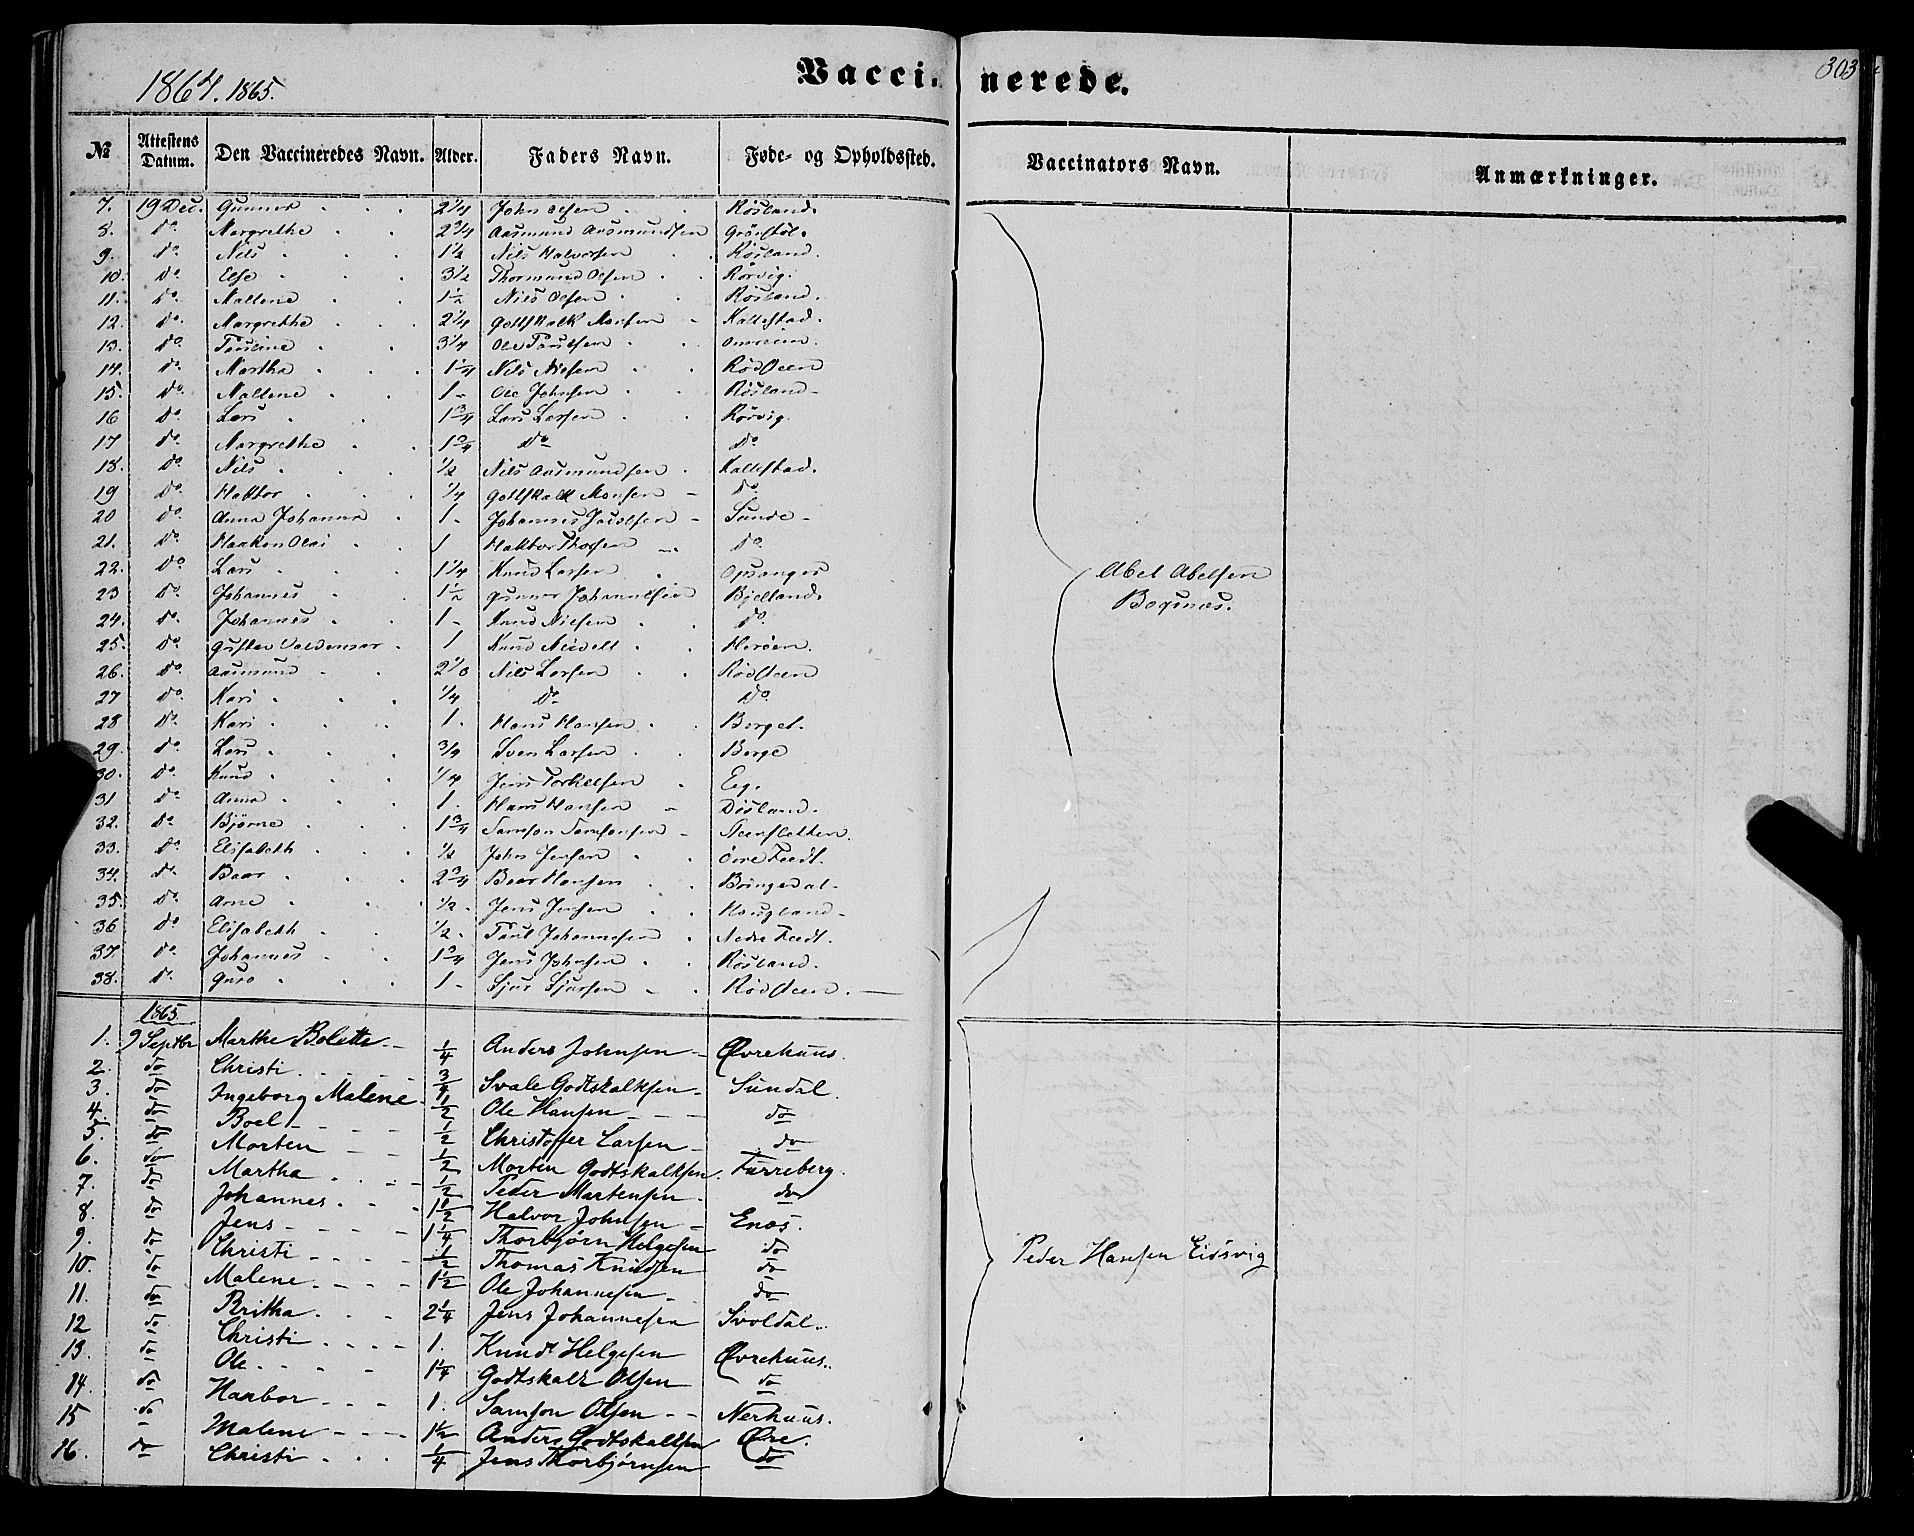 1864. 1865.
Vaccinerede.
303
№ Attestens Datum. Den Vaccineredes Navn. Alder. Faders Navn. Føde- og Opholdssted. Vaccinators Navn. Anmærkninger.
7. 19 Dec. Gunnar 2 1/4 John Olsen Røsland.
8. do Margrethe 2 3/4 Aasmund Aasmundsen Grønstøl.
9. do Nils 1 1/2 Nils Halvorsen Røsland.
10. do Else 3 1/2 Thormund Olsen Rørvig.
11. do Mallene 1 1/2 Nils Olsen Røsland.
12. do Margrethe 2 1/4 Gottskalk Monsen Kaltestad.
13. do Pauline 3 1/4 Ole Paulsen
14. do Martha 1 1/4 Nils Nilsen
15. do Mallene 1 - Ole Johnsen Røsland -
16 do Lars 1 3/4 Lars Larsen Rørvig.
17 do Margrethe 1 3/4 do do
18. do Nils 1/2 Nils Aasmundsen Kaltestad.
19 do Haktor 1/4 Gottskalk Monsen - do
20 do Anna Johanna 1 - Johannes - Sunde -
21. do Haaken Olai 1 do
22. do Lars 1 1/4 Knud Larsen Opsanger
23 do Johannes 1 1/2 Gunnar Johannesen Bjelland.
24. do Johannes 1 - Knud Nilsen do
25. do Gustav Valdemar 1 Knud
26. do Aasmund Nils Larsen
27 do Kari 1/4 do do
28 do Kari 1. Hans Hansen Borget.
29. do Lars 3/4 Sven Larsen Berge
30. do Knud 1/4 Jens Torkelsen Eeg.
31 do Anna 1. Hans Hansen - Døsland.
32. do Bjørne 1 3/4 Samson Samsonsen - Steensletten.
33. do Elisabeth 1/2 John Jensen
34. do Baar 2 3/4 Baar Hansen Bringedal -
35. do Arne 1/2 - Jens Jensen Hougland -
36 do Elisabeth 1/2. Poul Johannesen
37. do Johannes 1 3/4 Jens Johnsen Røsland.
38. do Guro 1 - Sjur Sjursen
Abel Abelsen
Bogsnæs.
1865.
1. 9 Septbr Marthe Bolette - 1/4 Anders Johnsen - Øvrehuus.
2. do Christi 3/4 Svale Godtskalksen - Sundal.
3. do Ingeborg Malene 1/2 Ole Hansen - - - do
4. do Boel - - - - 1/2 Christoffer Larsen - do
5. do Morten - - 1/2 Morten Godtskalksen. Furreberg.
6. do Martha 1/2 Peder Martensen - do
7. do Johannes 1 1/2 Halvor Johnsen - Enæs.
8. do Jens - - - - 1 1/4 Thorbjørn Helgesen do
9. do Christi - - - - 1/2 Thomas Knudsen do
10. do Malene - - - - 1 1/2 Ole Johannesen - do
11. do Britha 2 1/4 Jens Johannesen Svoldal.
12 do Christi 1. Knudt Helgesen Øvrehuus.
13. do Ole 1 1/4 Godtskalk Olsen do
14. do Haabor 1. Samson Olsen - - Nerhuus.
15 do Malene 1 1/2 Anders Godtskalksen Øre.
16. do Christi 1/4 Jens Thorbjørnsen do
Peder Hansen Eidsvig